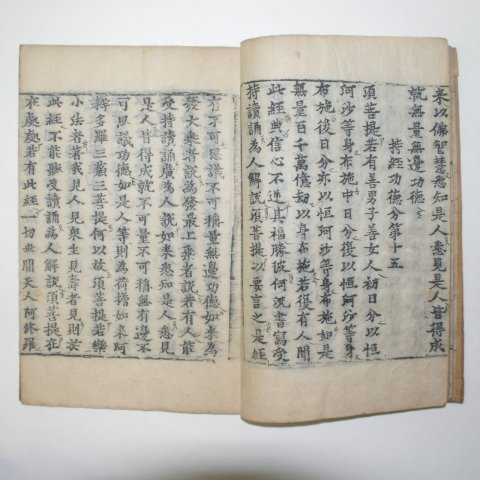 来以佛智慧悉知是人悉見是人皆得成
就無量無邊功德
持經功德分第十五
須菩提若有善男子善女人初日分以恒
河沙等身布施中日分復以恒河沙等身
布施後日分亦以恒河沙等身布施如是
無量百千萬億劫以身布施若復有人聞
此經典信心不逆其福勝彼何況書寫受
持讀誦為人解說須菩提以要言之是經
有不可思議不可稱量無邊功德如来為
發大乘者說為發最上乘者說若有人能
受持讀誦廣為人說如来悉知是人悉見
是人皆得成就不可量不可稱無有邊不
可思議功德如是人等則為荷擔如来阿
耨多羅三藐三菩提何以故須菩提若樂
小法者著我見人見眾生見壽者見則於
此經不能聽受讀誦為人解說須菩提在
在處處若有此經一切世間天人阿修羅